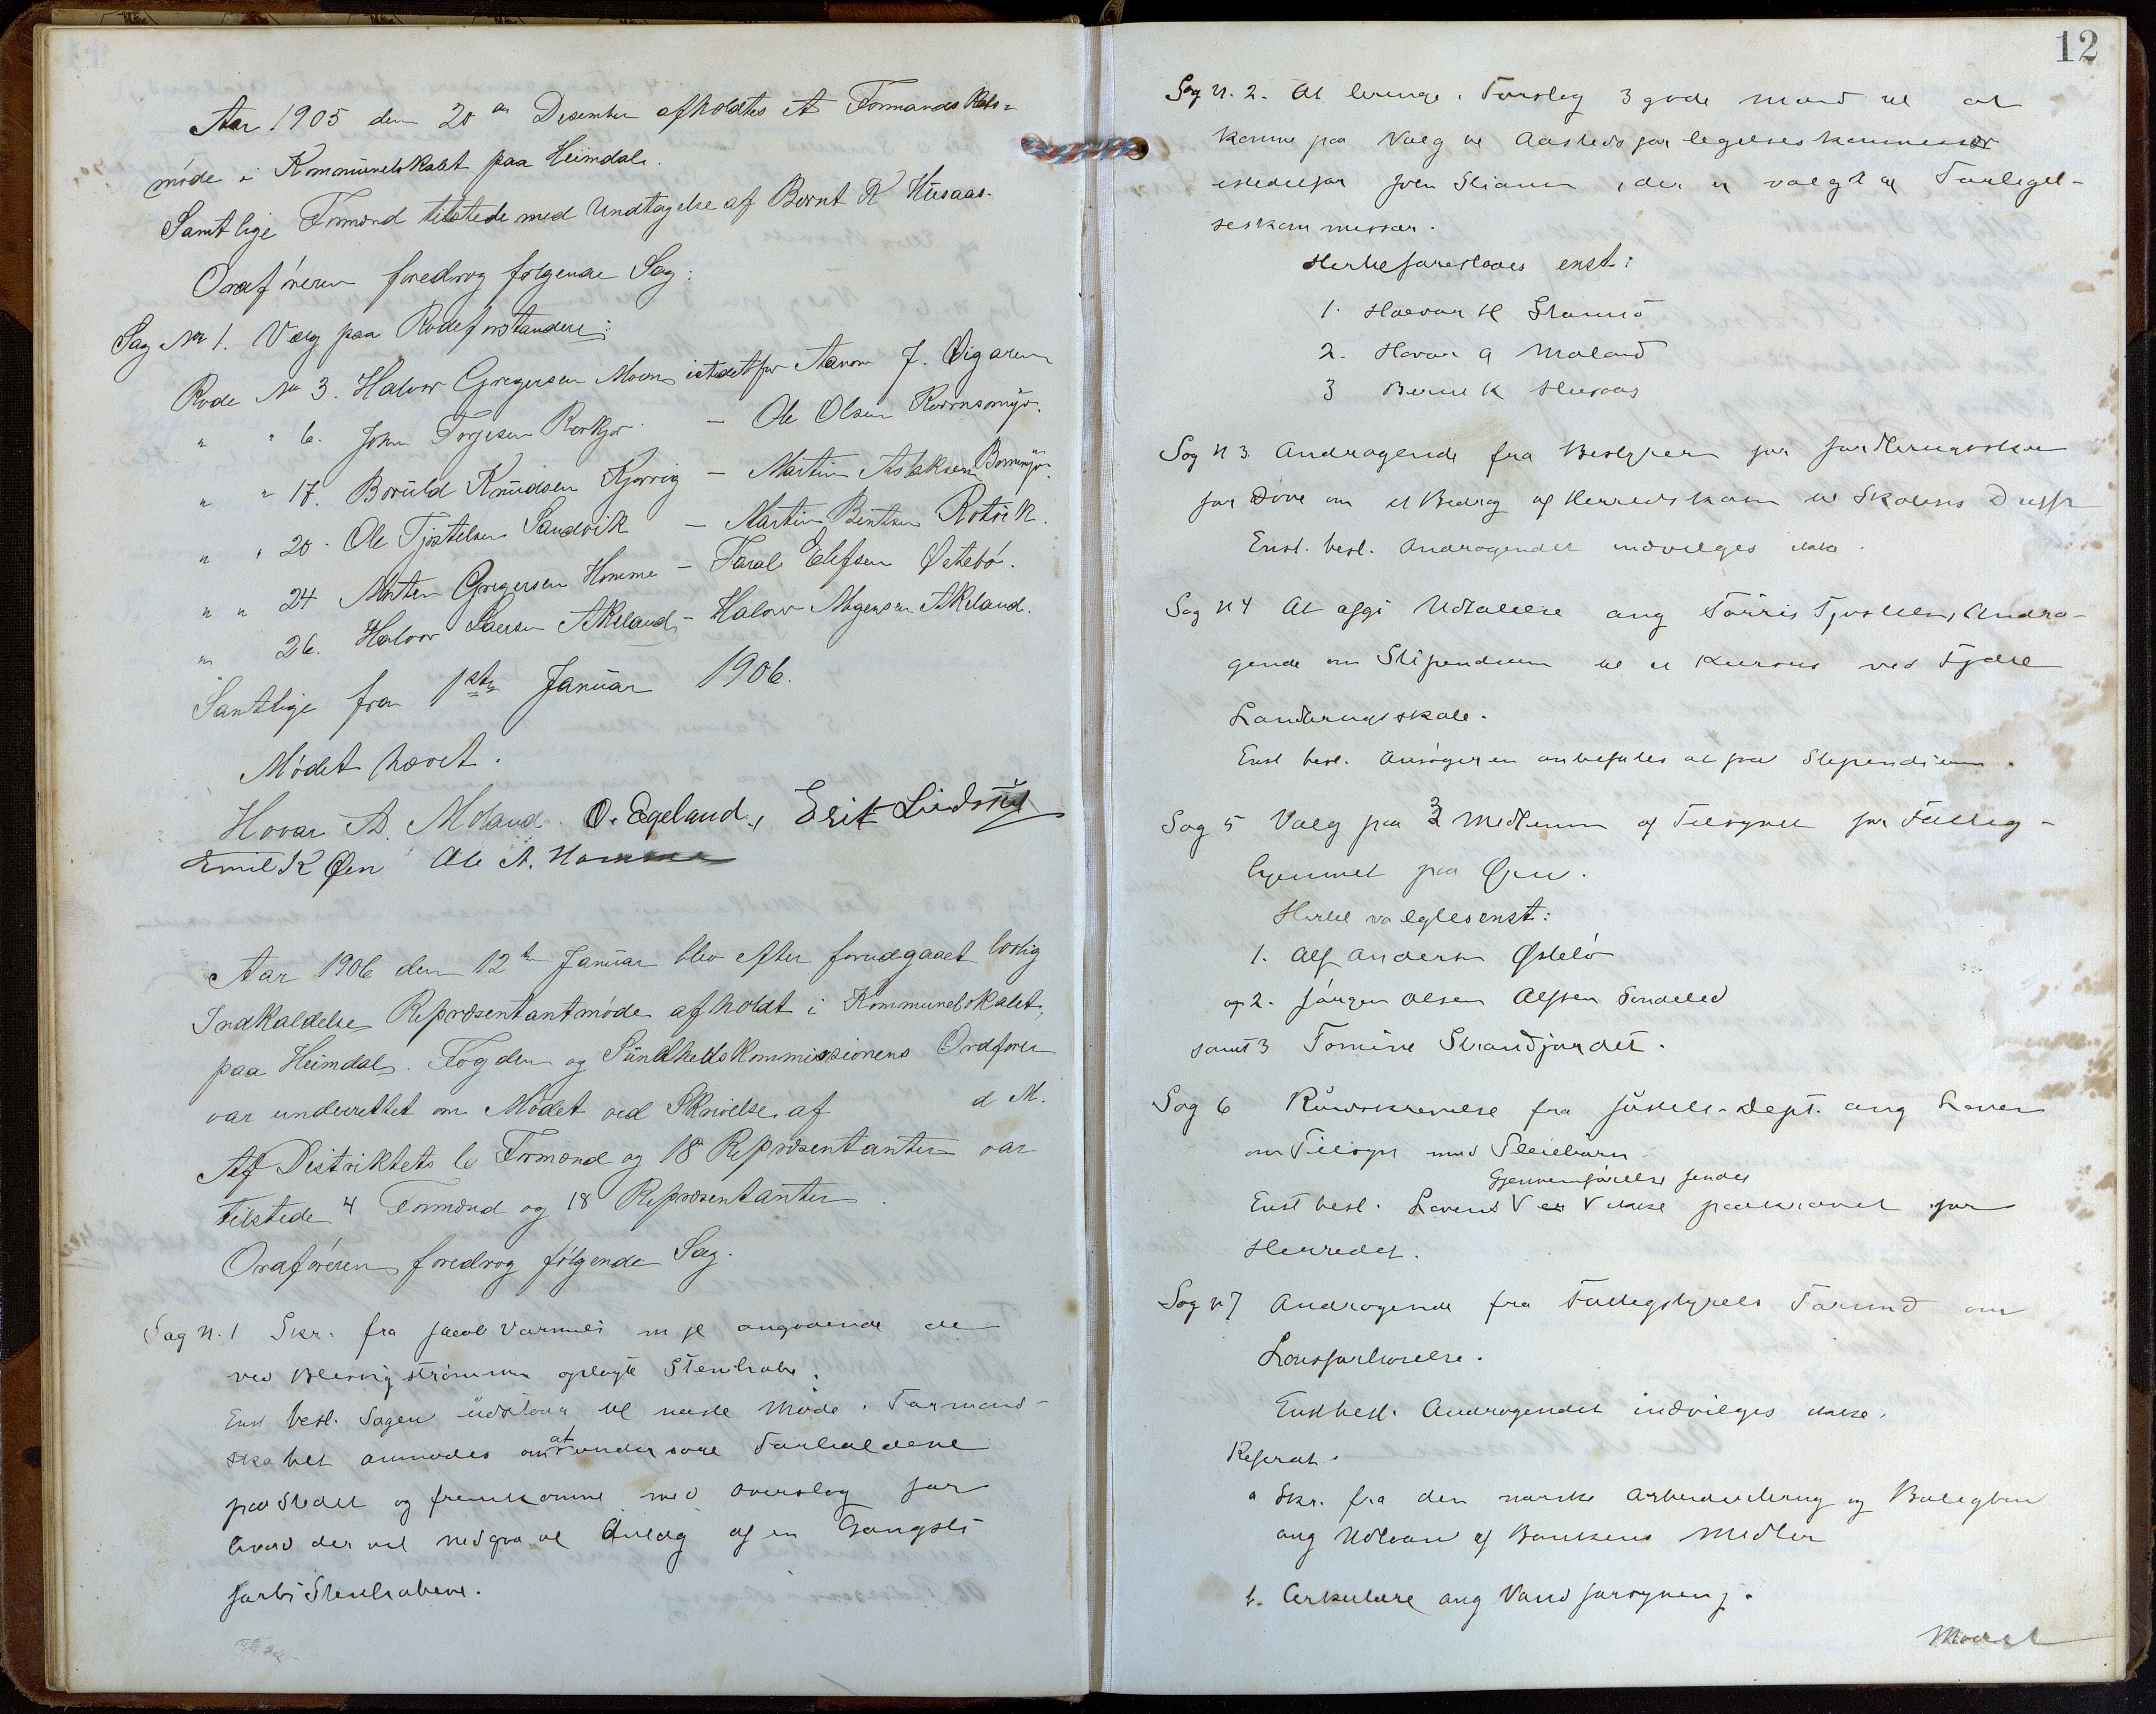 Aar 1905 den 20de Desember afholdtes et Formandskabs-
møde i Kommunelokalet paa Heimdal.
Samtlige Formænd tilstede med Undtagelse af Bernt K Husaas.
Ordføreren foredrog følgende Sag:
Sag No 1. Valg paa Rodeforstandere:
Rode No 3. Halvor Gregersen Moen istedetfor Aanon J. Øigaren
" " 6. John Torjesen Rørkjær - Ole Olsen
" " 17. Boruld Knudsen Kjørvig - Martin Aslaksen
" " 20. Ole Tjøstelsen Sandvik - Martin Bentsen Rotvik.
" " 24 Morten Gregersen Homme - Tarald Elefsen Østebø.
" 26. Halvor Larsen Akeland - Halvor Mogensen Akland.
Samtlige fra 1ste Januar 1906.
Mødet hævet.
Hovar A. Moland. O. Egeland, Erik Lindstøl
Emil K Øen Ole A. Homme
Aar 1906 den 12te Januar blev efter forudgaaet lovlig
Indkaldelse Repræsentantmøde afholdt i Kommunelokalet
paa Heimdal. Fogden og Sundhedskommissionens Ordfører
var underrettet om Mødet ved Skrivelse af d M.
Af Distriktets 6 Formænd og 18 Repræsentanter var
tilstede 4 Formænd og 18 Repræsentanter.
Ordføreren foredrog følgende Sag.
Sag N. 1 Skr. fra Jacob m fl angaaende de
ved oplagte Stenhobe.
Enst besl. Sagen udstaar til næste Møde. Formand-
skabet anmodes om at undersøge Forholdene
paa Stedet og fremkomme med Overslag for
hvad der vil medgaa til Anlæg af en Gangsti
forbi Stenhobene.
12
Sag N. 2. At bringe i Forslag 3 gode Mænd til at
komme paa Valg til Aastedsforligelseskommissær
istedetfor , der er valgt til Forligel-
seskommissær.
Hertil foresloges enst:
1. Halvor H Stamsø
2. Hovar A Moland
3 Bernt K Husaas
Sag N 3. Andragende fra Bestyrer for
for Døve om et Bidrag af Herredskassen til Skolens Drift
Enst. besl. Andragendet indvilges ikke.
Sag N 4 At afgi Udtalelse ang Torris Tjostelsens Andra-
gende om Stipendium til et Kursus ved
Landbrugsskole.
Enst besl. Ansøgeren anbefales at faa Stipendium.
Sag 5 Valg paa 3 Medlemmer af Tilsynet for Fattig-
hjemmet paa Øen.
Hertil valgtes enst:
1. Alf Andersen Østebø
og 2. Jørgen Olsen Alfsen Søndeled
samt 3 Tomine Strandjordet.
Sag 6 Rundskrivelse fra Justits-Dept. ang Loven
om Tilsyn med Pleiebørn
Gjennemførelse findes
Enst besl. Lovens V er V ikke paakrævet for
Herredet.
Sag N 7 Andragende fra Fattigstyrets Formand om
Lønsforhøielse.
Enst besl. Andragendet indvilges ikke.
Referat.
a Skr. fra den norske Arbeiderbrug og Boligbank
ang Udlaan af Bankens Midler
b. Cirkulære ang Vandforsyning.
Mødet